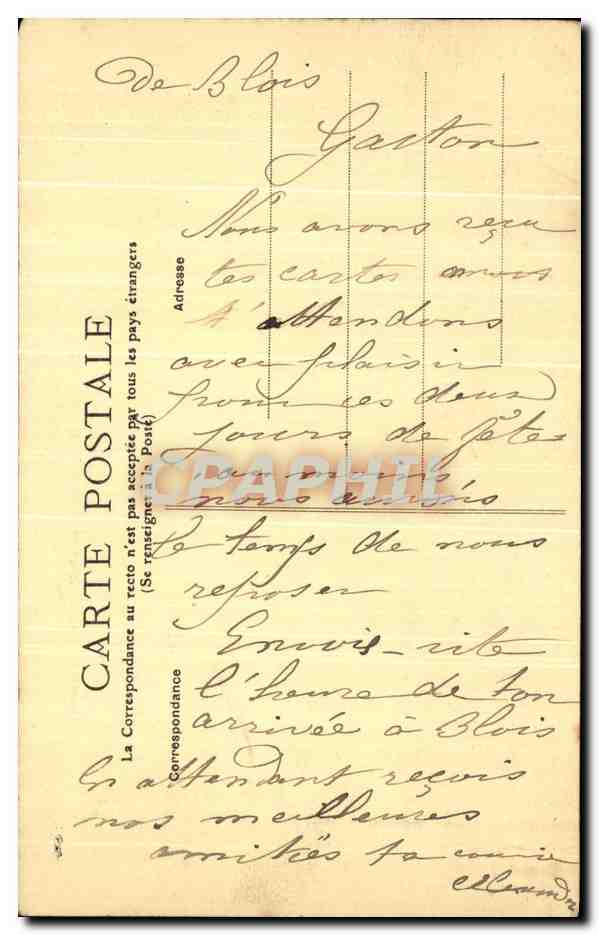 De Blois
Gaston
Nous avons reçu
tes cartes nous
t'attendons
avec plaisir
pour ces deux
jours de fêtes
au moins
nous aurons
le temps de nous
reposer
Envois-vite
l'heure de ton
arrivée à Blois
En attendant reçois
nos meilleures
amitiés ta
CARTE POSTALE
La Correspondance au recto n'est pas acceptée par tous les pays étrangers
(Se renseigner à la Poste)
Adresse
Correspondance
CPAPHIL